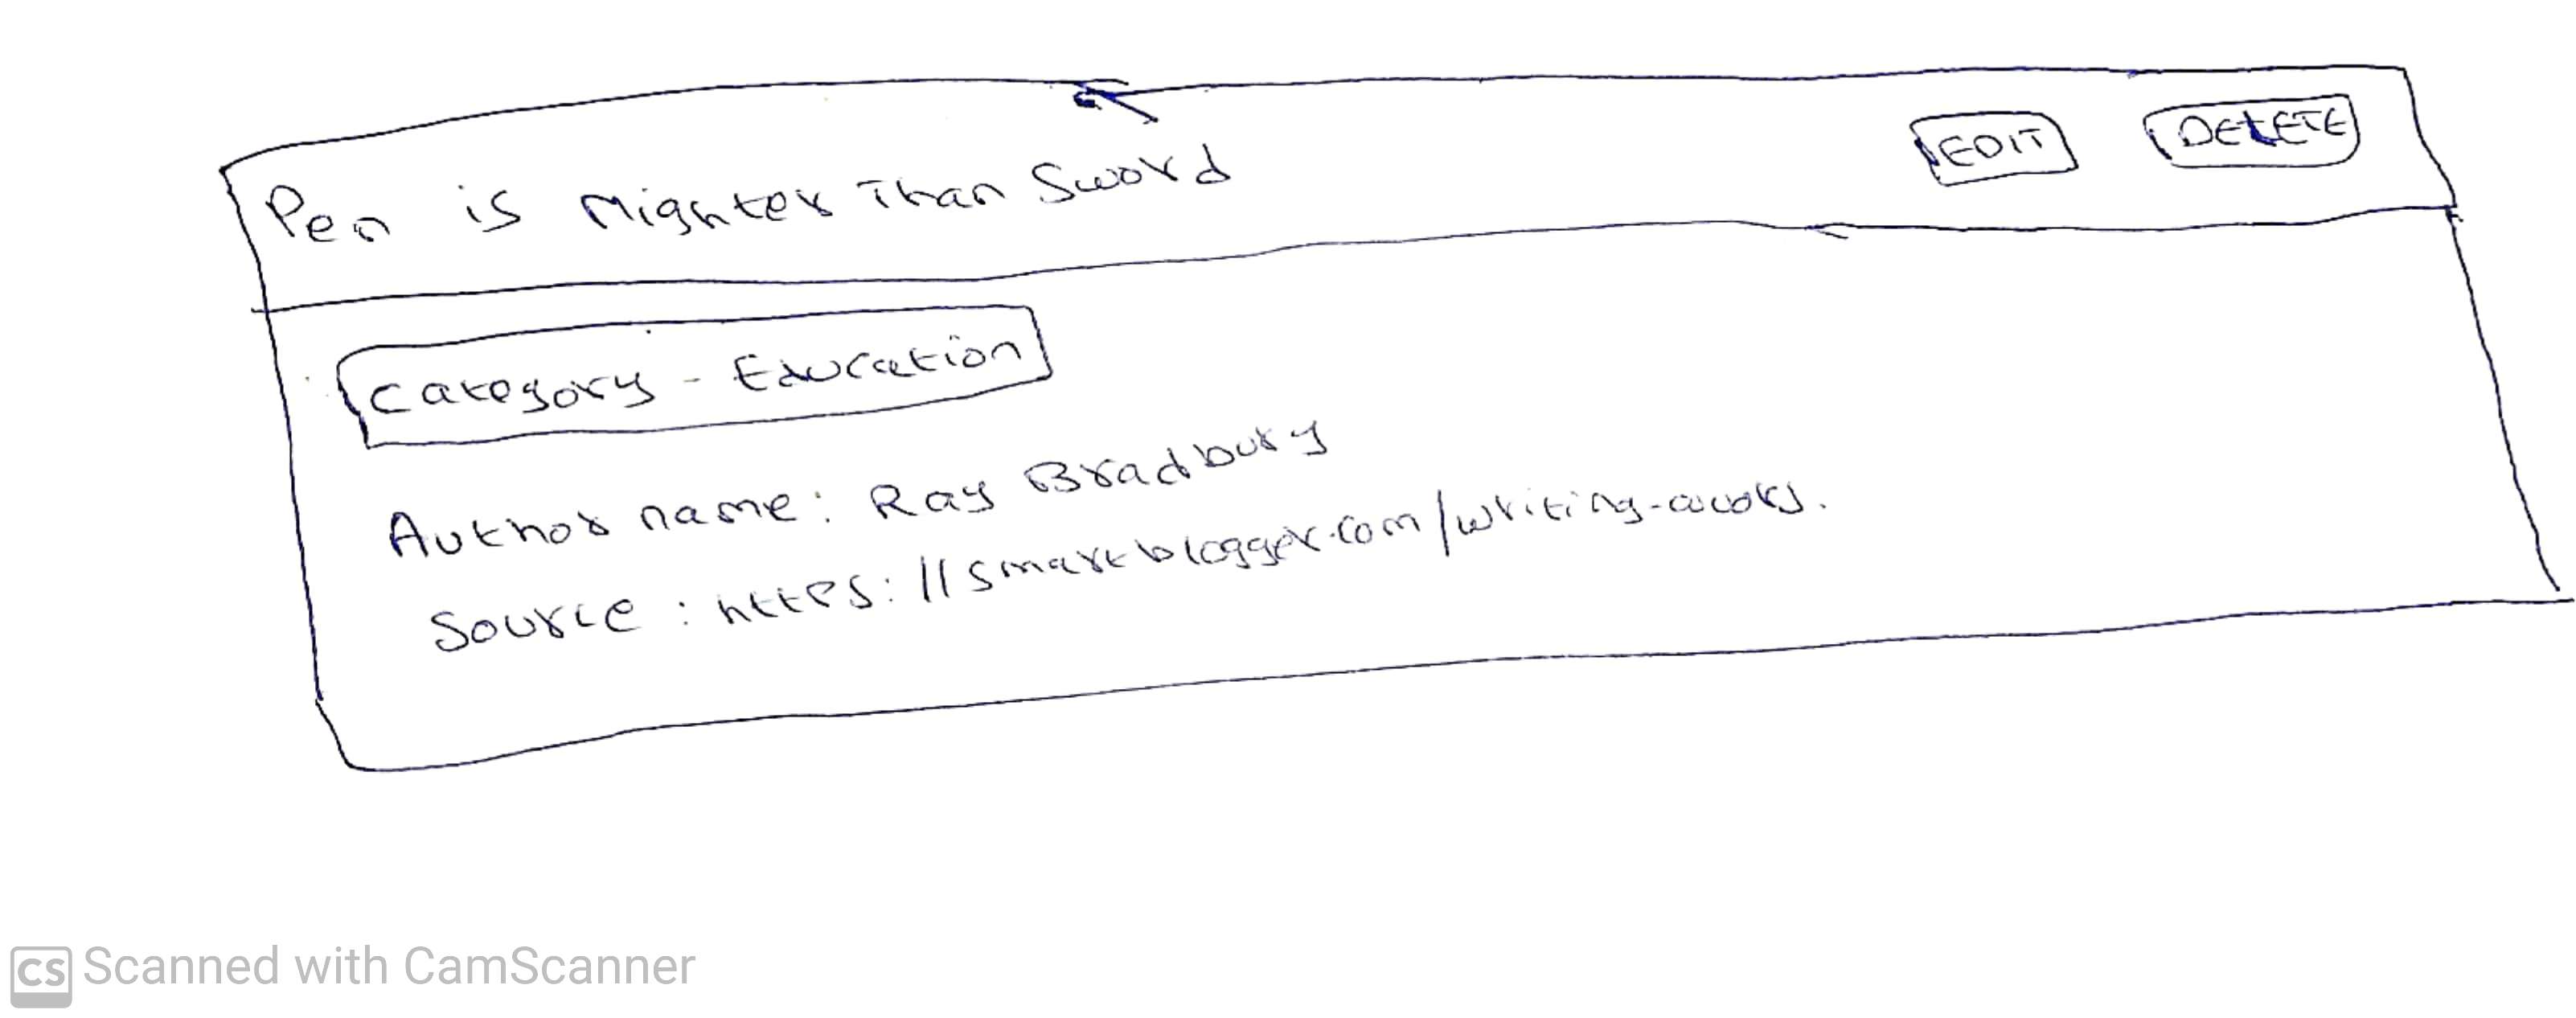 Pen is Mighter Than Sword
EDIT
DELETE
Category - Education
Author name: Ray Bradbury
Source : https://smartblogger.com/writing-
CS Scanned with CamScanner